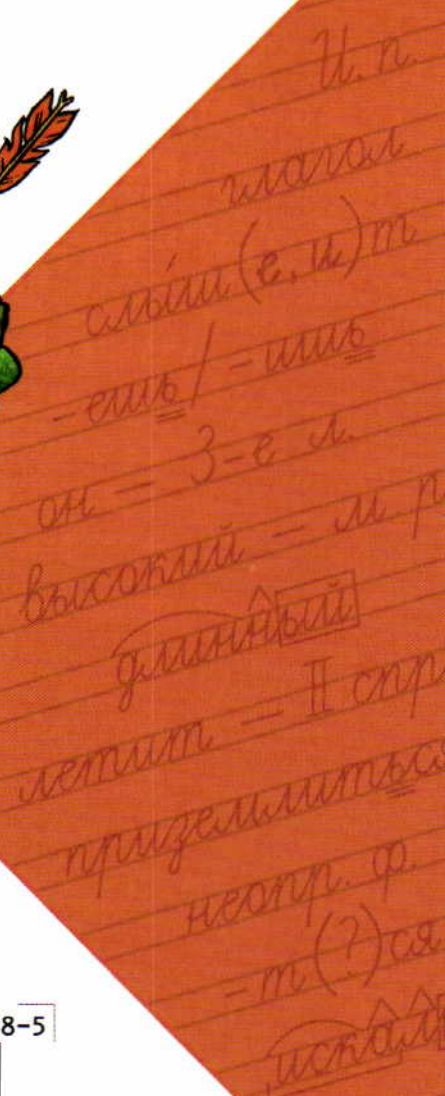 И. п.
глагол
слы́ш(е, и)т
-ешь/-ишь
он — 3-е л.
высокий — м. р
длинный
летит — II спр
приземлиться
неопр. ф.
-т(?)ся
8-5
искал